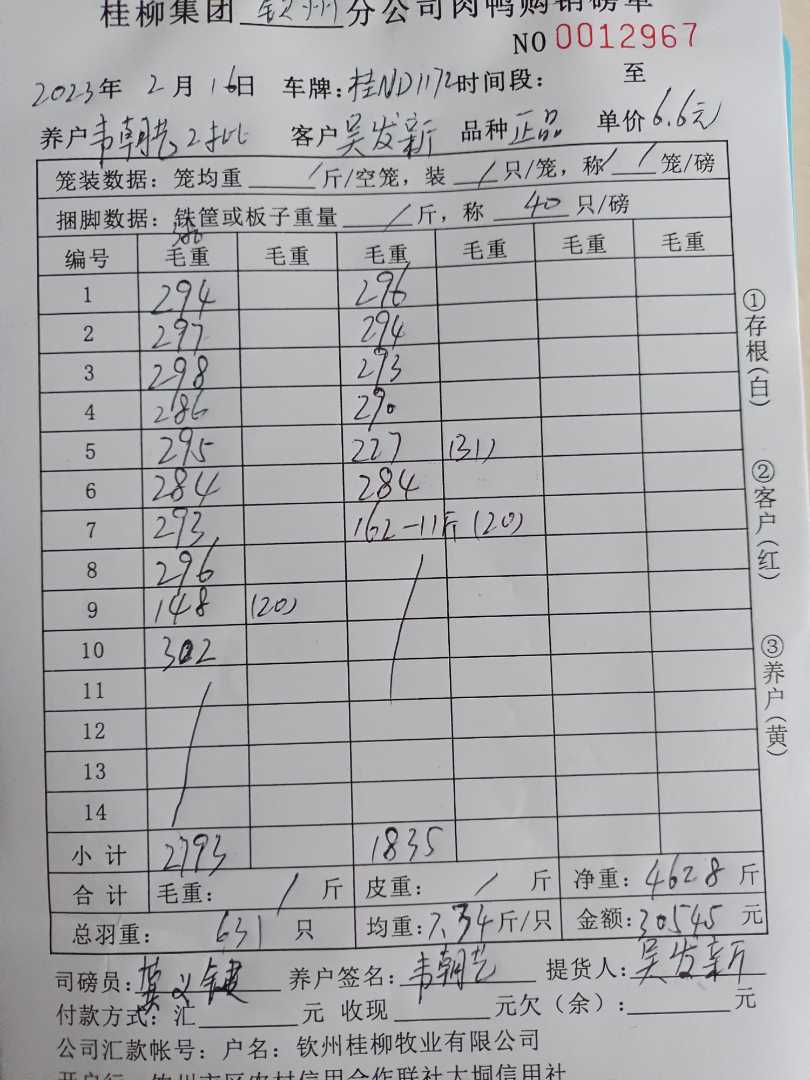 桂柳集团 钦州 分公司肉鸭购销磅单
NO 0012967
2023年 2月 16日 车牌:桂ND1172 时间段: 至
养户 韦朝艺2批 客户 吴发新 品种 正品 单价 6.6元
笼装数据: 笼均重 / 斤/空笼, 装 / 只/笼, 称 / 笼/磅
捆脚数据: 铁筐或板子重量 / 斤, 称 40 只/磅
编号 毛重 毛重 毛重 毛重 毛重 毛重
1 294 296
2 297 294
3 298 293
4 286 290
5 295 227 (31)
6 284 284
7 293 162-11斤(20)
8 296
9 148 (20)
10 302
11
12
13
14
小计 2793 1835
合计 毛重: / 斤 皮重: / 斤 净重: 4628 斤
总羽重: 631 只 均重: 7.34 斤/只 金额: 30545 元
司磅员: 莫义键 养户签名: 韦朝艺 提货人: 吴发新
付款方式: 汇 元 收现 元欠(余): 元
公司汇款帐号: 户名: 钦州桂柳牧业有限公司
开户行: 钦州市区农村信用合作联社大垌信用社
①存根(白)
②客户(红)
③养户(黄)